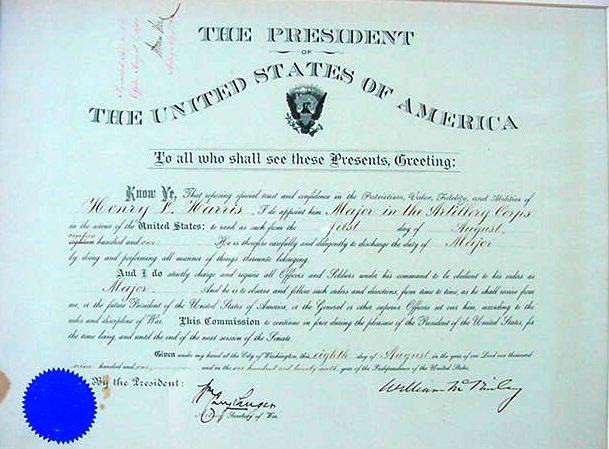 THE PRESIDENT
OF
THE UNITED STATES OF AMERICA
To all who shall see these Presents, Greeting:
Know Ye, That reposing special trust and confidence in the Patriotism, Valor, Fidelity, and Abilities of
Henry L. Harris, I do appoint him Major in the Artillery Corps
in the service of the United States: to rank as such from the first day of August
nineteen
eighteen hundred and one. He is therefore carefully and diligently to discharge the duty of Major
by doing and performing all manner of things thereunto belonging.
And I do strictly charge and require all Officers and Soldiers under his command to be obedient to his orders as
Major. And he is to observe and follow such orders and directions, from time to time, as he shall receive from
me, or the future President of the United States of America, or the General or other superior Officers set over him, according to the
rules and discipline of War. This Commission to continue in force during the pleasure of the President of the United States, for
the time being, and until the end of the next session of the Senate.
Given under my hand at the City of Washington, this eighth day of August in the year of our Lord one thousand
nine hundred and one and in the one hundred and twenty sixth year of the Independence of the United States.
By the President: William McKinley
Acting Secretary of War.